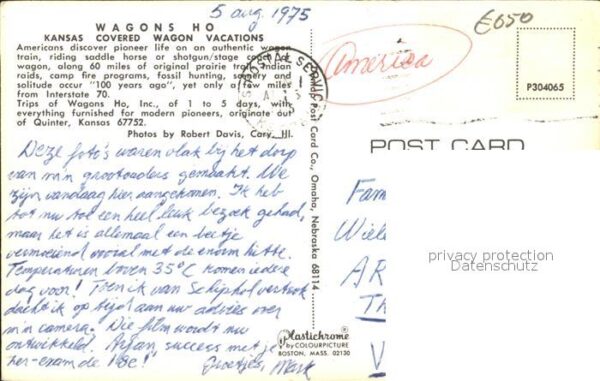 5 aug 1975
WAGONS HO
KANSAS COVERED WAGON VACATIONS
Americans discover pioneer life on an authentic wagon
train, riding saddle horse or shotgun/stage coach or
wagon, along 60 miles of original prairie trail. Indian
raids, camp fire programs, fossil hunting, scenery and
solitude occur "100 years ago", yet only a few miles
from Interstate 70.
Trips of Wagons Ho, Inc., of 1 to 5 days, with
everything furnished for modern pioneers, originate out
of Quinter, Kansas 67752.
Photos by Robert Davis, Cary, Ill.
Deze foto's waren vlak bij het dorp
van m'n grootouders gemaakt. We
zijn vandaag hier aangekomen. Ik heb
tot nu toe een heel leuk bezoek gehad,
maar het is allemaal een beetje
vermoeiend vooral met de enorm hitte.
Temperaturen boven 35°C komen iedere
dag voor! Toen ik van Schiphol vertrok
dacht ik op tijd aan uw advies over
m'n camera. Die film wordt nu
ontwikkeld. Arjan success met je
her-exam de
Groetjes, Mark
POSTAL SERVICE
Post Card Co., Omaha, Nebraska 68114
Plastichrome
by COLOURPICTURE
BOSTON, MASS. 02130
America
€650
P304065
POST CARD
Fam
Wiel
AR
Th
V
privacy protection
Datenschutz